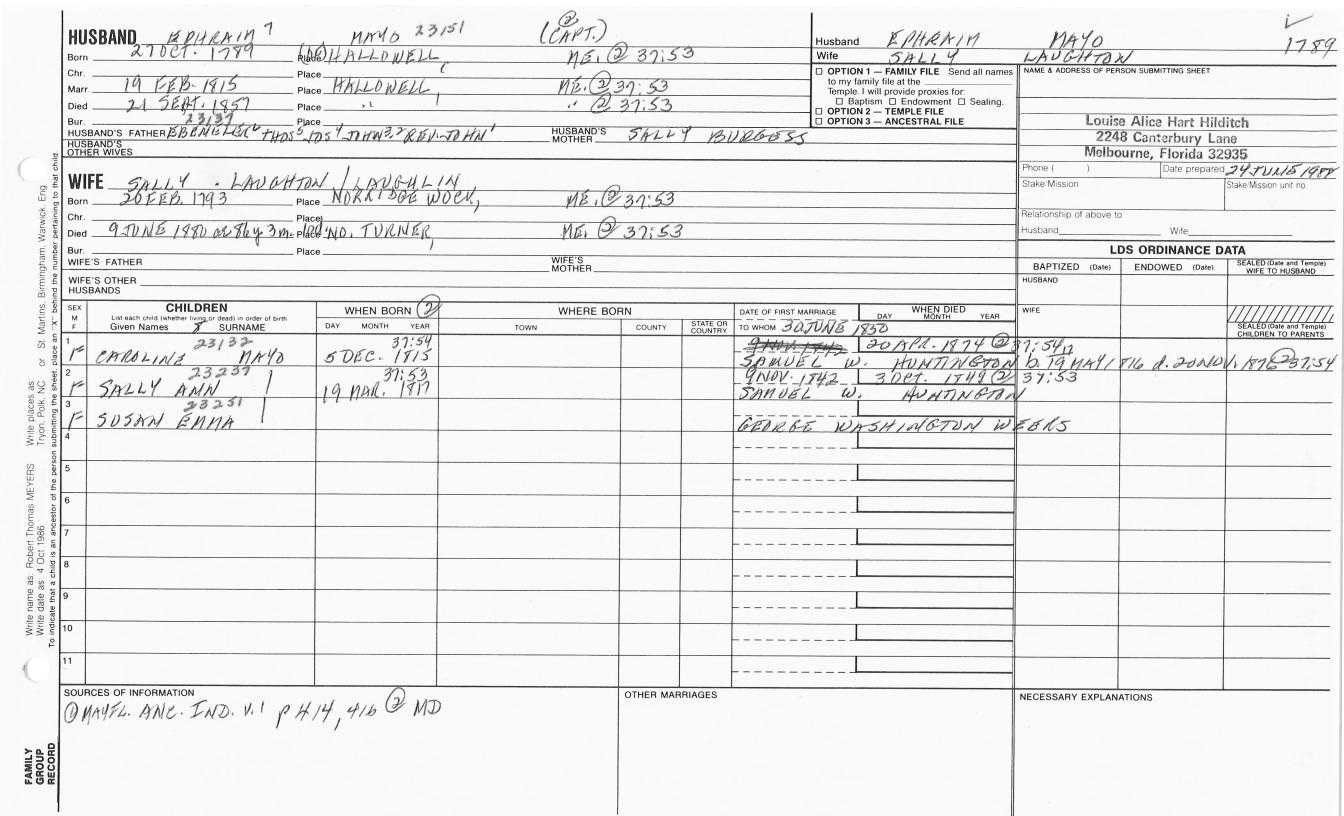 HUSBAND EPHRAIM 7 MAYO 23151 (CAPT.) ②
Born 27 OCT. 1789 Place HALLOWELL, ME. ② 37:53
Chr. Place
Marr. 19 FEB. 1815 Place HALLOWELL, ME. ② 37:53
Died 21 SEPT. 1857 Place " " ② 37:53
Bur. Place
23137
HUSBAND'S FATHER EBENEZER6 THOS5 JOS4 JOHN3,2 REV. JOHN1 HUSBAND'S MOTHER SALLY BURGESS
HUSBAND'S OTHER WIVES
WIFE SALLY LAUGHTON / LAUGHLIN
Born 20 FEB. 1793 Place NORRIDGEWOCK, ME. ② 37:53
Chr. Place
Died 9 JUNE 1880 ae 86y 3m Place NO. TURNER, ME. ② 37:53
Bur. Place
WIFE'S FATHER WIFE'S MOTHER
WIFE'S OTHER HUSBANDS
Husband EPHRAIM MAYO 1789
Wife SALLY LAUGHTON
☐ OPTION 1 — FAMILY FILE Send all names
to my family file at the
Temple. I will provide proxies for:
☐ Baptism ☐ Endowment ☐ Sealing.
☐ OPTION 2 — TEMPLE FILE
☐ OPTION 3 — ANCESTRAL FILE
NAME & ADDRESS OF PERSON SUBMITTING SHEET
Louise Alice Hart Hilditch
2248 Canterbury Lane
Melbourne, Florida 32935
Phone ( ) Date prepared 24 JUNE 1988
Stake/Mission Stake/Mission unit no.
Relationship of above to
Husband Wife
LDS ORDINANCE DATA
BAPTIZED (Date) ENDOWED (Date) SEALED (Date and Temple) WIFE TO HUSBAND
HUSBAND
WIFE
SEALED (Date and Temple) CHILDREN TO PARENTS
SEX M F CHILDREN WHEN BORN ② WHERE BORN DATE OF FIRST MARRIAGE WHEN DIED
List each child (whether living or dead) in order of birth
Given Names SURNAME DAY MONTH YEAR TOWN COUNTY STATE OR COUNTRY TO WHOM DAY MONTH YEAR
30 JUNE 1850
1 23132 37:54 9 NOV. 1842 20 APR. 1874 ② 37:54
F CAROLINE MAYO 5 DEC. 1815 SAMUEL W. HUNTINGTON b. 19 MAY 1816 d. 20 NOV. 1876 ② 37:54
2 23237 37:53 9 NOV. 1842 3 OCT. 1849 ② 37:53
F SALLY ANN 19 MAR. 1817 SAMUEL W. HUNTINGTON
3 23251
F SUSAN EMMA GEORGE WASHINGTON WEEKS
4
5
6
7
8
9
10
11
SOURCES OF INFORMATION
① MAYFL. ANC. IND. V.1 p 414, 416 ② MD
OTHER MARRIAGES
NECESSARY EXPLANATIONS
Write name as: Robert Thomas MEYERS Write places as: Tryon, Polk, NC or St. Martins, Birmingham, Warwick, Eng.
Write date as: 4 Oct 1986
To indicate that a child is an ancestor of the person submitting the sheet, place an "X" behind the number pertaining to that child.
FAMILY
GROUP
RECORD